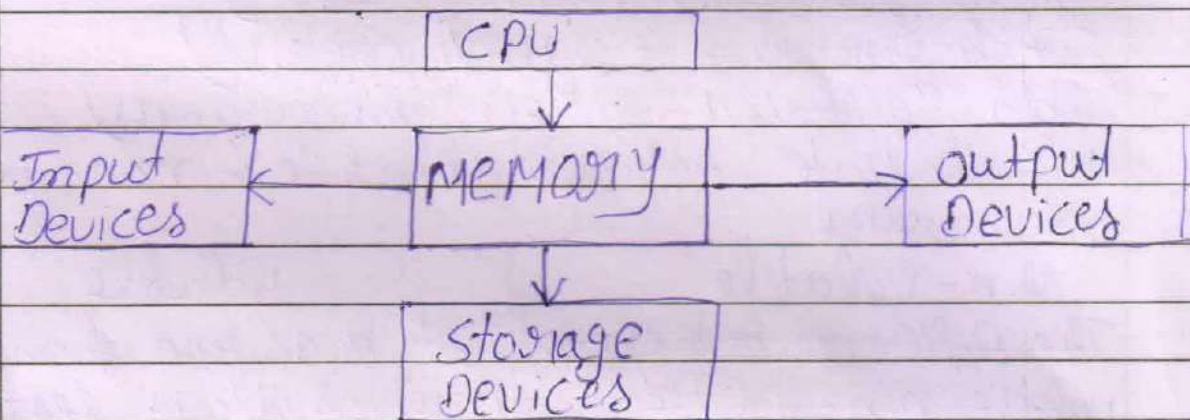 CPU
Input
Devices
MEMORY
output
Devices
Storage
Devices